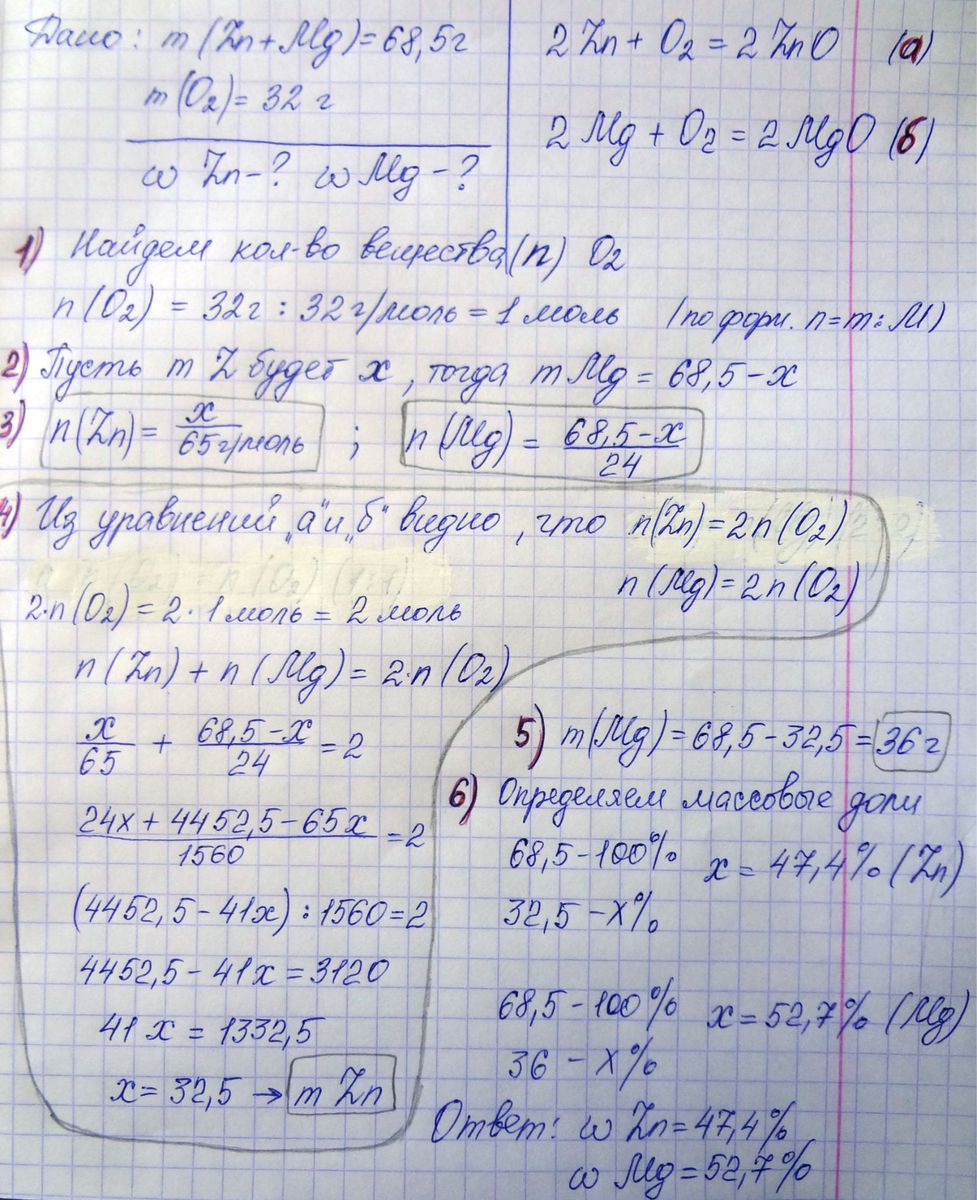 Дано: m (Zn+Mg)=68,5г
m (O₂)= 32 г
ω Zn-? ω Mg -?
2 Zn + O₂ = 2 ZnO (а)
2 Mg + O₂ = 2 MgO (б)
1) Найдем кол-во вещества (n) O₂
n (O₂) = 32г : 32 г/моль = 1 моль /по форм. n=m:M)
2) Пусть m Z будет x, тогда m Mg = 68,5-x
3) n(Zn)= x/65г/моль ; n(Mg) = 68,5-x/24
4) Из уравнений „а" и „б" видно, что n(Zn)=2n(O₂)
n(Mg)=2n(O₂)
2·n(O₂)= 2 · 1 моль = 2 моль
n (Zn) + n (Mg) = 2·n(O₂)
x/65 + 68,5-x/24 = 2
24x + 4452,5-65x/1560 = 2
(4452,5-41x) : 1560=2
4452,5-41x = 3120
41 x = 1332,5
x= 32,5 → m Zn
5) m(Mg)= 68,5-32,5= 36 г
6) Определяем массовые доли
68,5-100% x = 47,4% (Zn)
32,5 -X%
68,5-100% x=52,7% (Mg)
36 - X%
Ответ: ω Zn=47,4%
ω Mg=52,7%